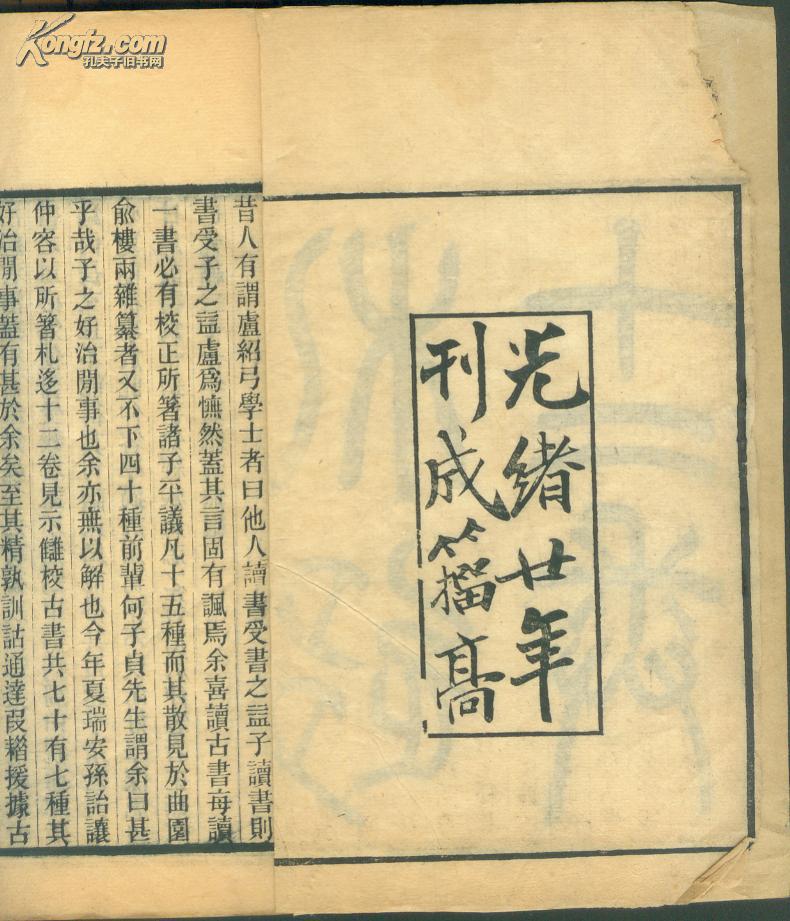 Kongfz.com
孔夫子旧书网
光緒廿年
刊成籀高
昔人有謂盧紹弓學士者曰他人讀書受書之益子讀書則
書受子之益盧爲憮然蓋其言固有諷焉余喜讀古書每讀
一書必有校正所箸諸子平議凡十五種而其散見於曲園
俞樓兩雜纂者又不下四十種前輩何子貞先生謂余曰甚
乎哉子之好治閒事也余亦無以解也今年夏瑞安孫詒讓
仲容以所箸札迻十二卷見示讎校古書共七十有七種其
好治閒事蓋有甚於余矣至其精孰訓詁通達叚耤援據古